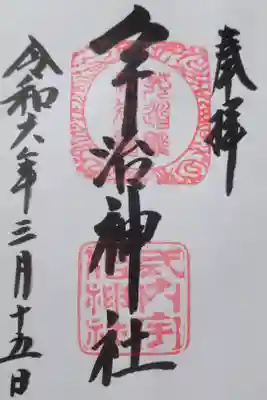 奉拝
宇治神社
式内宇治神社
令和六年三月十五日